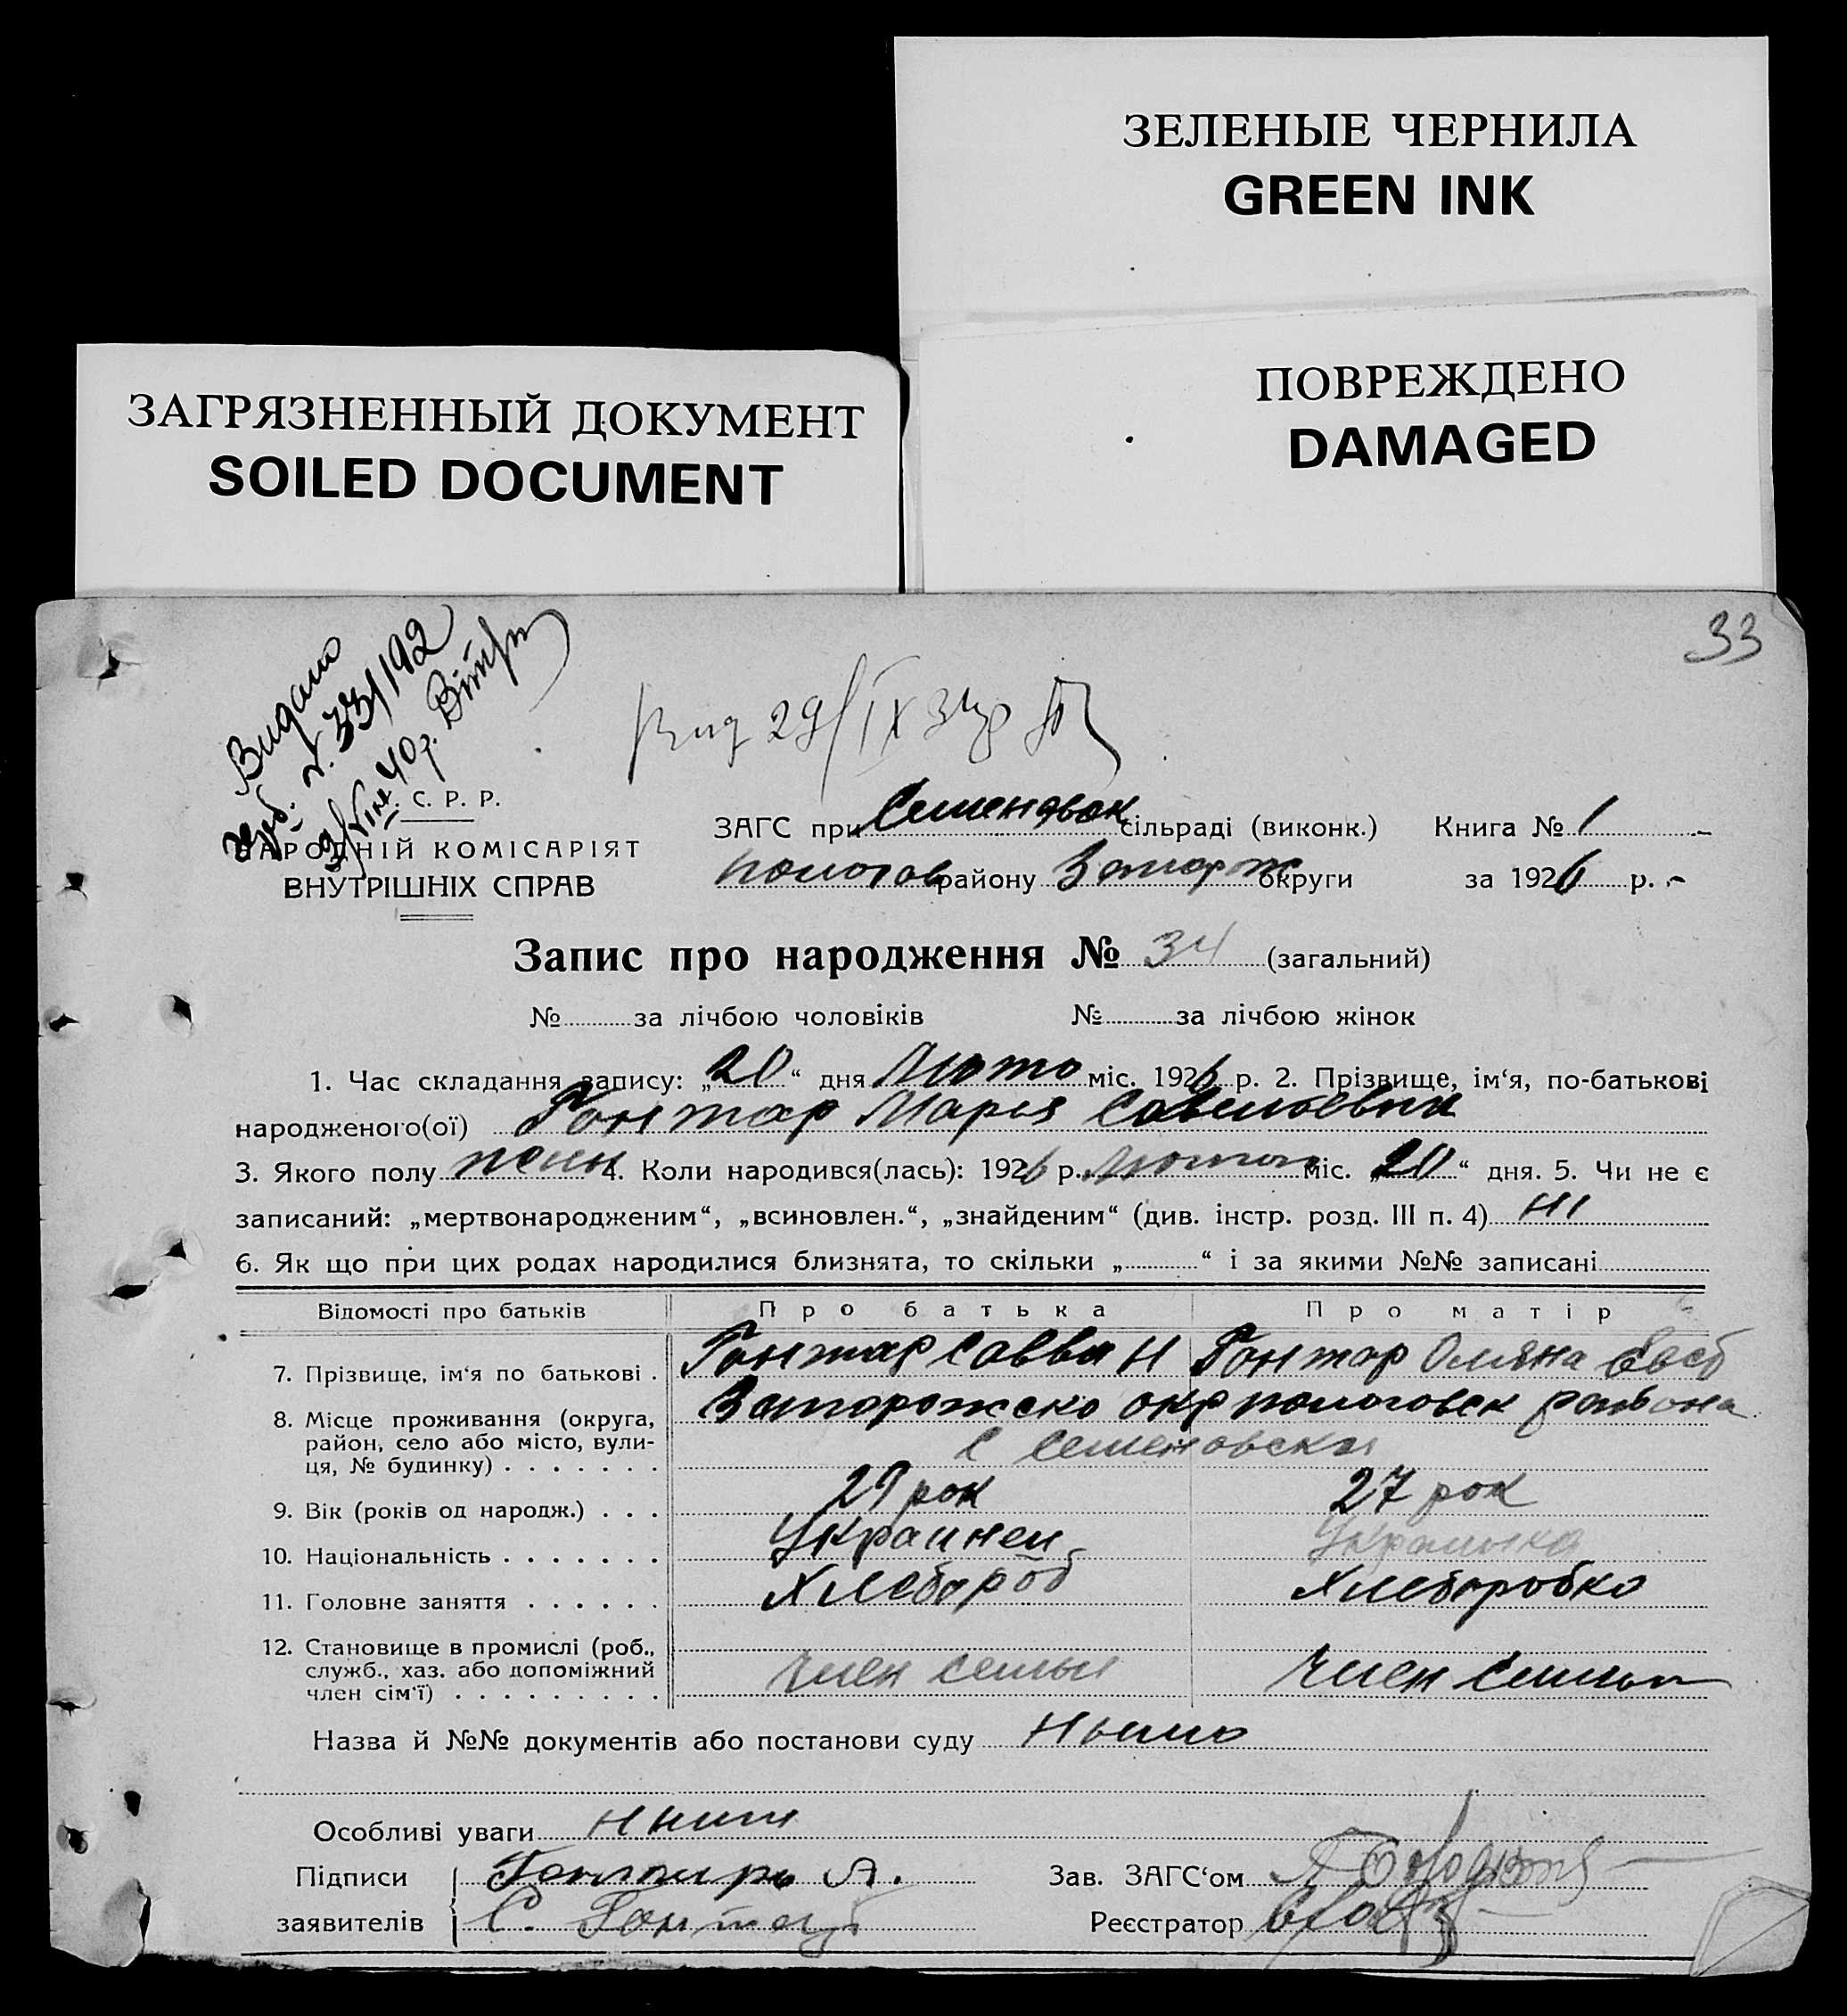 ЗЕЛЕНЫЕ ЧЕРНИЛА
GREEN INK
ПОВРЕЖДЕНО
DAMAGED
ЗАГРЯЗНЕННЫЙ ДОКУМЕНТ
SOILED DOCUMENT
33
Видано
33/192
40 р.
29/IX
С. Р. Р.
НАРОДНІЙ КОМІСАРІЯТ
ВНУТРІШНІХ СПРАВ
ЗАГС при Семеновск сільраді (виконк.) Книга № 1
Пологов району Запорож округи за 1926 р.
Запис про народження № 34 (загальний)
№ за лічбою чоловіків № за лічбою жінок
1. Час складання запису: „20“ дня Люто міс. 1926 р. 2. Прізвище, ім‘я, по-батькові
народженого(ої) Гонтар Мария Савельевна
3. Якого полу жены 4. Коли народився(лась): 1926 р. Лютого міс. „20“ дня. 5. Чи не є
записаний: „мертвонародженим“, „всиновлен.“, „знайденим“ (див. інстр. розд. III п. 4) ні
6. Як що при цих родах народилися близнята, то скільки „ “ і за якими №№ записані
Відомості про батьків Про батька Про матір
7. Прізвище, ім‘я по батькові . Гонтар Савва Н Гонтар Оляна
8. Місце проживання (округа, район, село або місто, вулиця, № будинку) Запорожско окр пологовск района
с Семеновска
9. Вік (років од народж.) . . . 29 рок 27 рок
10. Національність . . . . . . . Украинец Украинка
11. Головне заняття . . . . . . Хлебороб Хлеборобка
12. Становище в промислі (роб., служб., хаз. або допоміжний член сім‘ї) . . . . . . . . . член семьи член семьи
Назва й №№ документів або постанови суду
Особливі уваги
Підписи Гонтарь А. Зав. ЗАГС‘ом
заявителів С. Гонтарь Реєстратор